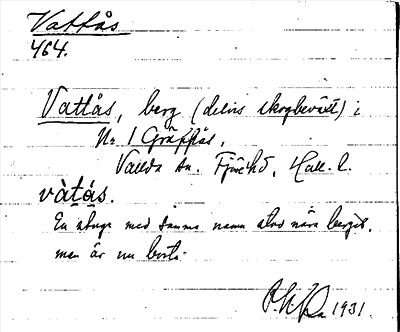 Vattås
464.
Vattås, berg (delvis skogbeväxt) i
Nr 1 Gräppås,
Vallda sn. Fjäre hd, Hall. l.
vàtå̀s.
En stuga med samma namn stod nära berget,
men är nu borta.
1931.